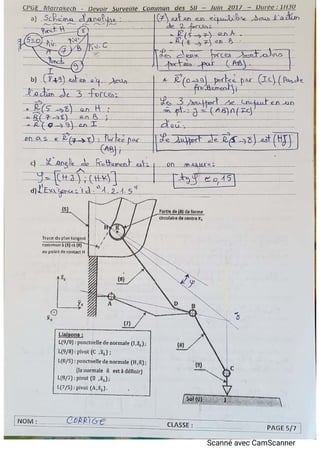 CPGE Marrakech - Devoir Surveillé Commun des SII - Juin 2017 - Durée : 1H30
a) Schéma d'analyse :
b) (8+9) est en eq. sous
l'action de 3 forces:
- R(5→8) en H ;
- R(7→8) en B ;
- R(0→9) en I
on a : R(7→8) : Portée par
(AB) ;
(7) est en en équilibre sous l'action
de 2 forces:
- R(5→7) en A.
- R(8→7) en B.
Les deux forces sont alors
portées par (AB)
R(0→9) portée par (IC) (Pas de
frottement);
Les 3 support se coupent en un
m pt : J = (AB)∩(IC)
d'où,
Le support de R(5→8) est (HJ)
c) L'angle de frottement est :
φ = [(HJ) ; (HK)]
on mesure :
tg φ ≈ 0,15
d) L'Exigence : id. "1.2.1.5"
(5)
Partie de (8) de forme
circulaire de centre K.
Trace du plan tangent
commun à (5) et (8)
au point de contact H
H
K
(8)
φ
A
D
B
J
(7)
(8)
(9)
C
Sol (0)
I
Liaisons :
L(9/0) : ponctuelle de normale (I, z₀) ;
L(9/8) : pivot (C, x₀) ;
L(8/5) : ponctuelle de normale (H, n) ;
(la normale n est à définir)
L(8/7) : pivot (B, x₀) ;
L(7/5) : pivot (A, x₀).
NOM : CORRIGE CLASSE : PAGE 5/7
Scanné avec CamScanner